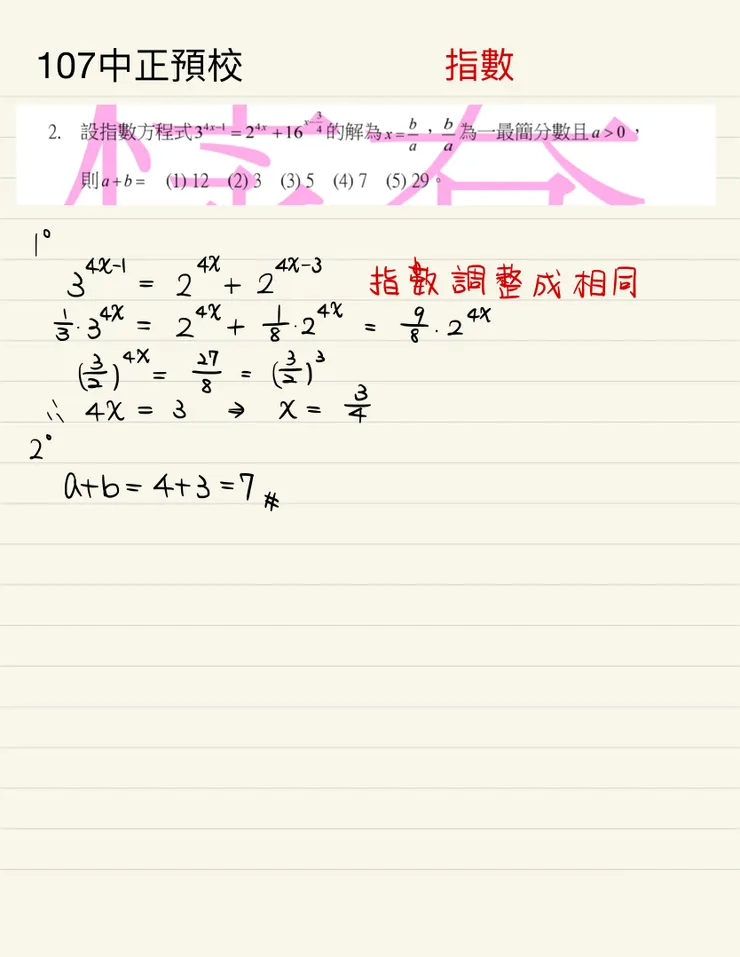 107中正預校 指數
2. 設指數方程式 3^{4x-1} = 2^{4x} + 16^{x-\frac{3}{4}} 的解為 x = \frac{b}{a}，\frac{b}{a} 為一最簡分數且 a > 0，
則 a + b = (1) 12 (2) 3 (3) 5 (4) 7 (5) 29。
1°
3^{4x-1} = 2^{4x} + 2^{4x-3} 指數調整成相同
\frac{1}{3} · 3^{4x} = 2^{4x} + \frac{1}{8} · 2^{4x} = \frac{9}{8} · 2^{4x}
(\frac{3}{2})^{4x} = \frac{27}{8} = (\frac{3}{2})^3
∴ 4x = 3 → x = \frac{3}{4}
2°
a+b = 4+3 = 7 #